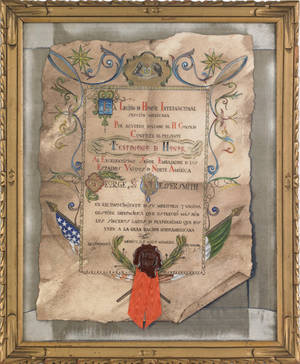 LA LEGIÓN DE HONOR INTERNACIONAL
SECCIÓN MEXICANA
POR ACUERDO UNÁNIME DE H. CONSEJO
CONFIERE EL PRESENTE
TESTIMONIO DE HONOR
AL EXCELENTÍSIMO SEÑOR EMBAJADOR DE LOS
ESTADOS UNIDOS DE NORTE AMÉRICA
GEORGE S. MESSERSMITH
EN RECONOCIMIENTO DE SU MERITORIA Y VALIOSA
GESTIÓN DIPLOMÁTICA QUE ESTRECHÓ MÁS AÚN
LOS SINCEROS LAZOS DE FRATERNIDAD QUE NOS
UNEN A LA GRAN NACIÓN NORTEAMERICANA